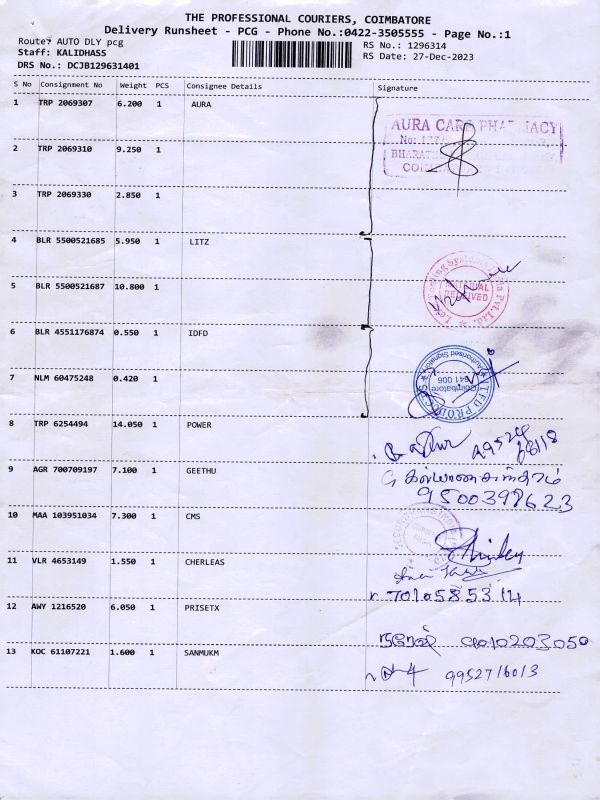 THE PROFESSIONAL COURIERS, COIMBATORE
Delivery Runsheet - PCG - Phone No.:0422-3505555 - Page No.:1
Route? AUTO DLY pcg RS No.: 1296314
Staff: KALIDHASS RS Date: 27-Dec-2023
DRS No.: DCJB129631401
S No Consignment No Weight PCS Consignee Details Signature
1 TRP 2069307 6.200 1 AURA
AURA CARE PHARMACY
2 TRP 2069310 9.250 1
3 TRP 2069330 2.850 1
4 BLR 5500521685 5.950 1 LITZ
MATERIAL RECEIVED
5 BLR 5500521687 10.800 1
6 BLR 4551176874 0.550 1 IDFD
Authorised Signatory
Coimbatore
641 006
7 NLM 60475248 0.420 1
8 TRP 6254494 14.050 1 POWER
9 AGR 700709197 7.100 1 GEETHU
9500398623
10 MAA 103951034 7.300 1 CMS
11 VLR 4653149 1.550 1 CHERLEAS
7010585314
12 AWY 1216520 6.050 1 PRISETX
13 KOC 61107221 1.600 1 SANMUKM
9952716013